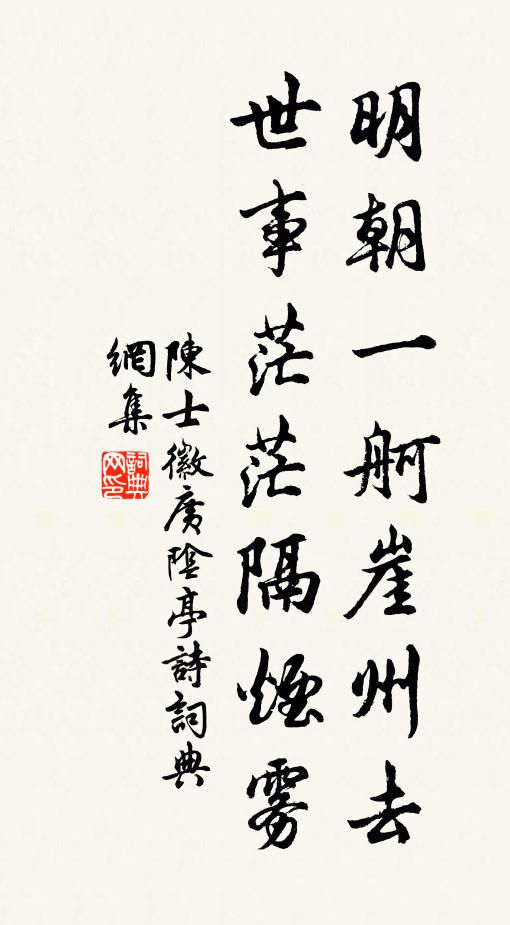 明朝一舸崖州去
世事茫茫隔煙雾
陳士徽廣陰亭詩詞典
網集
詞典網印